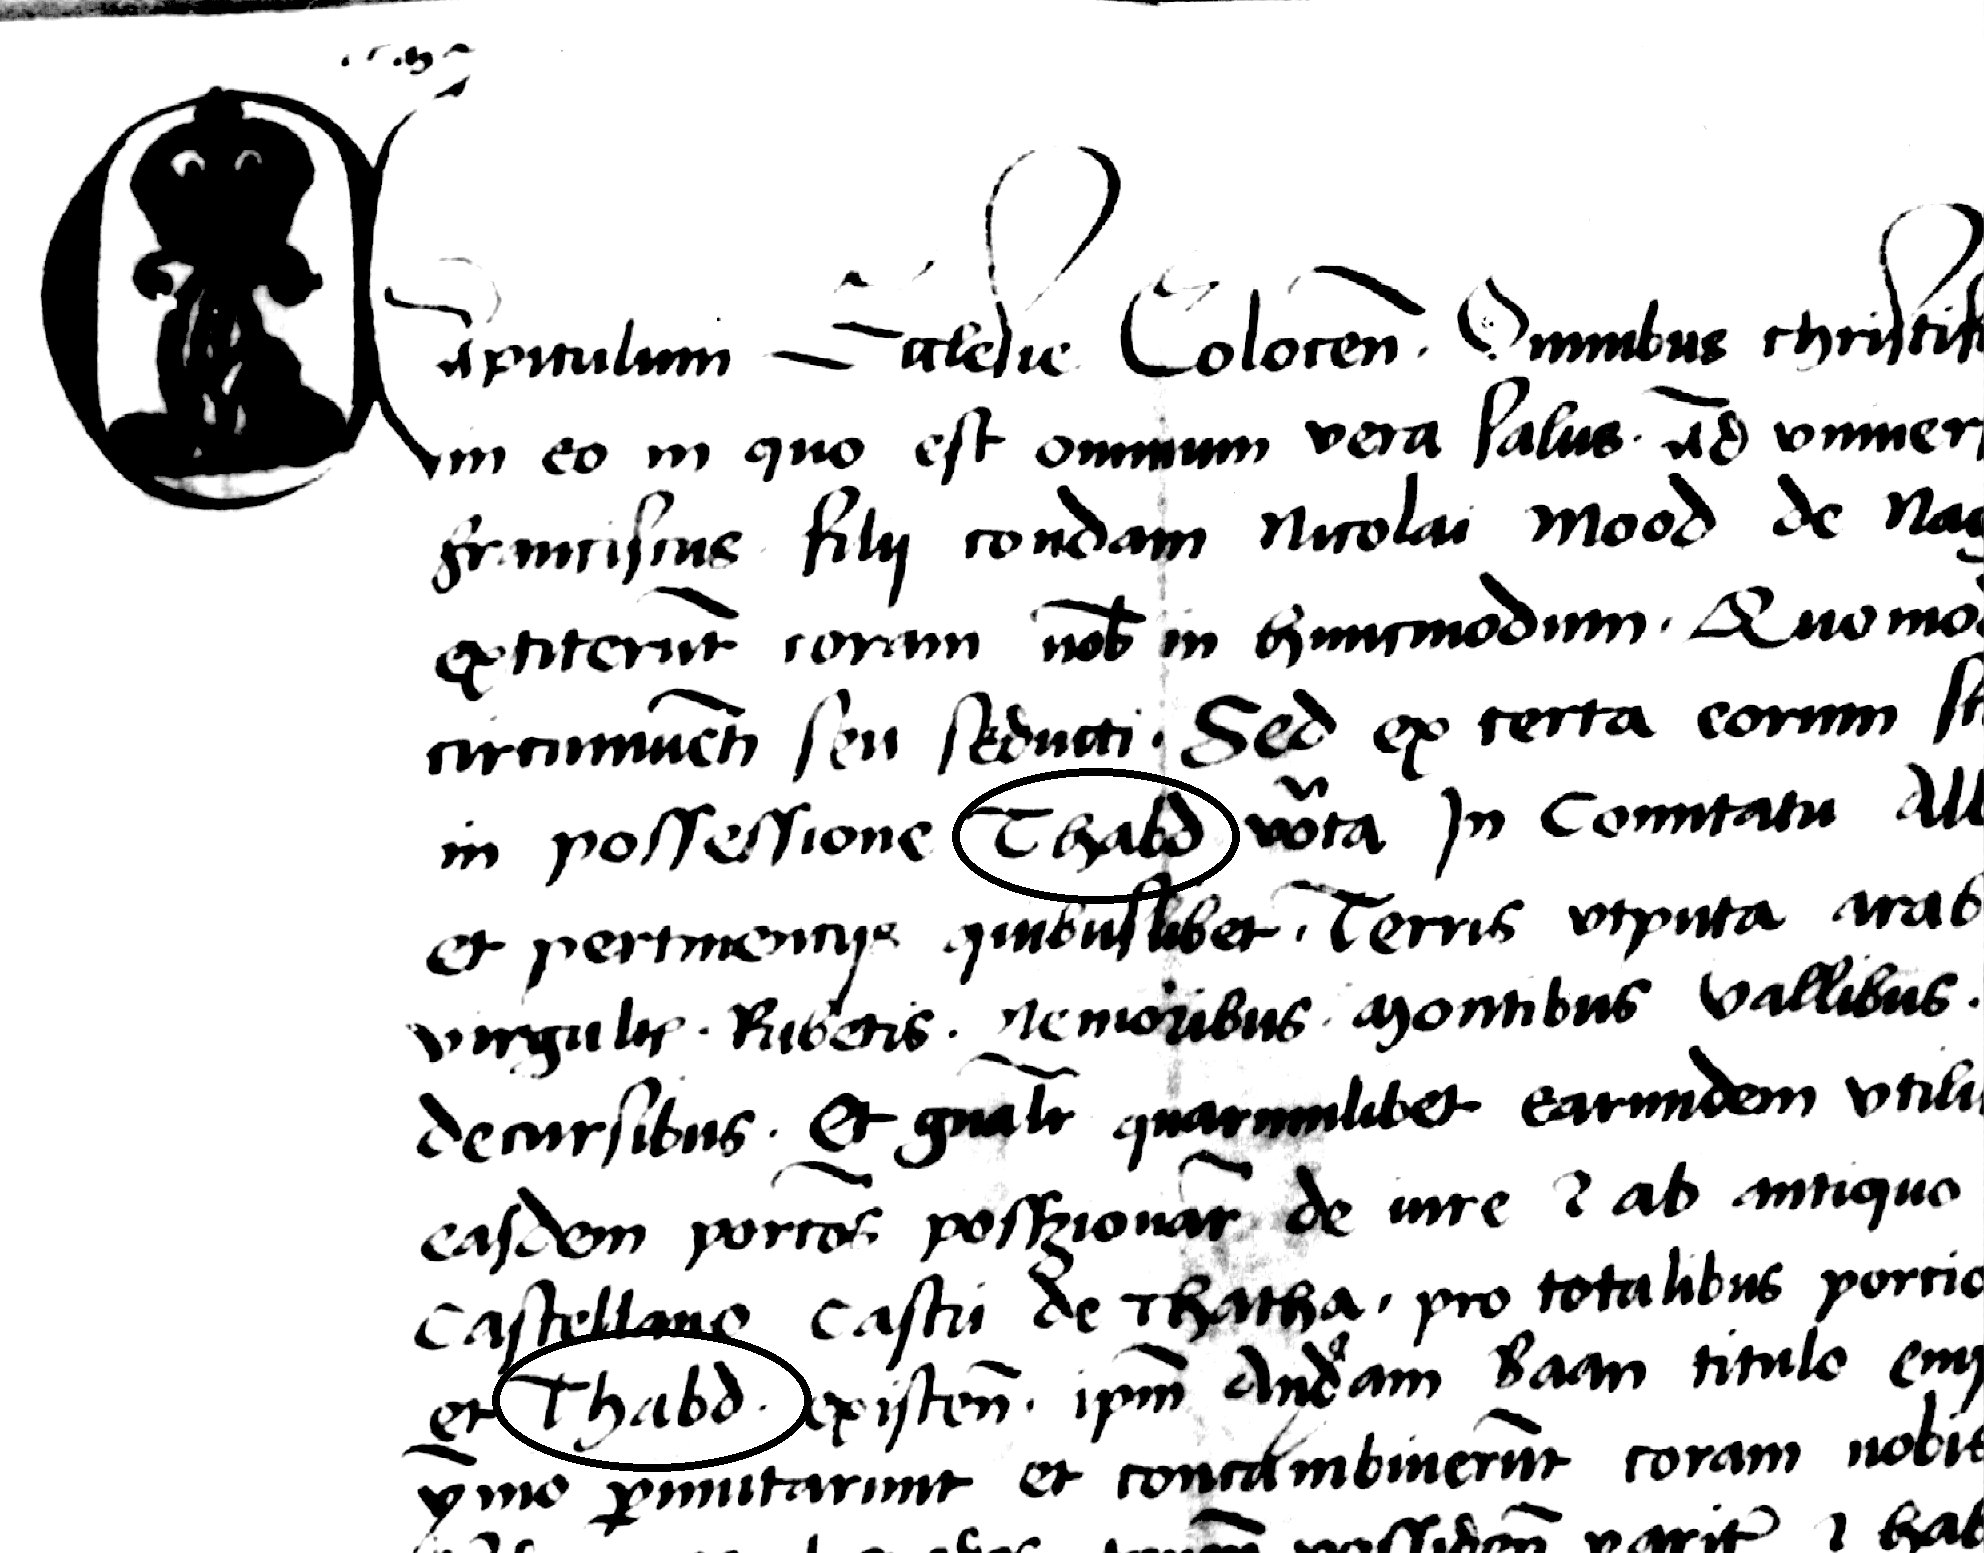 Capitulum Ecclesie Colocen̄. Omnibus christif
rum eo in quo est omnium vera salus. ad vniuer
franciscus filij condam Nicolai Mood de Nag
extiterūt coram nob̄ in hunc modum. Quomod
circumuēti seu seducti. Sed ex certa eorum sc
in possessione Thabd vo͂ta In Comitatu Alb
et pertinencijs quibuslibet. Terris vtputa arab
virgultis. Rubetis. Nemoribus. Montibus Vallibus.
decursibus. Et gn̄alr quarumlibet earundem vtili
easdem porcōes possessionar̄ de iure ⁊ ab antiquo
Castellano castri de Thatha. pro totalibus porcio
et Thabd. existen̄. ipm̄ Andᵃam Baan titulo emp
ymo ꝑmutarunt et concambiuerūt coram nobis
possiden̄ parit̄ ⁊ hab